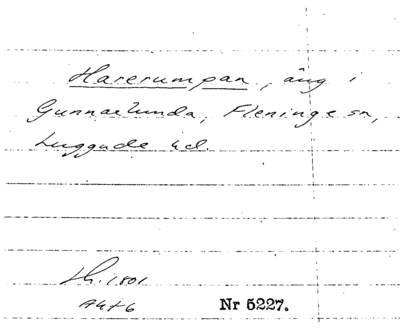 Harerumpan, äng i
Gunnarlunda, Fleninge sn,
Luggude hd.
Lh. 1801
Akt 6 Nr 5227.